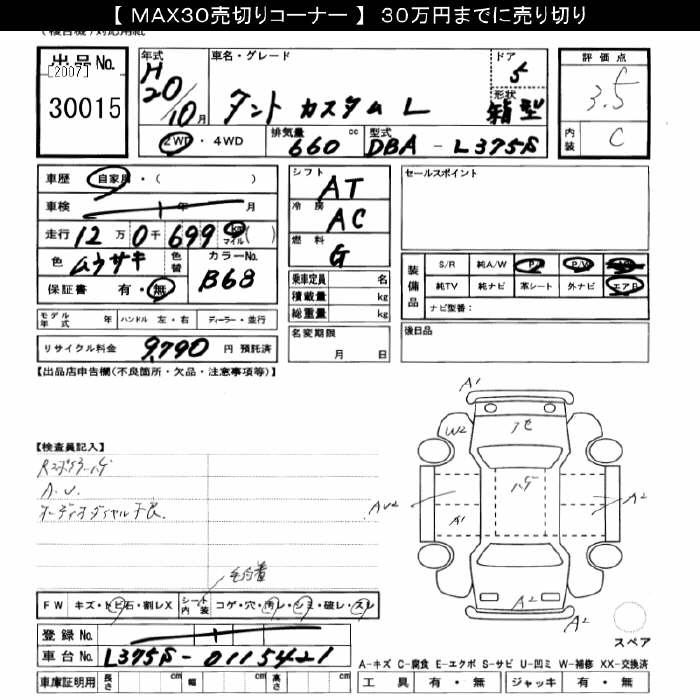 【 MAX30売切りコーナー 】 30万円までに売り切り
出品No.
[2007]
30015
年式 H20/10月
車名・グレード
タント カスタム L
ドア 5
形状 箱型
2WD ・ 4WD
排気量 660 cc
型式 DBA - L375S
評価点
3.5
内装 C
車歴 自家用・( )
車検 年 月
走行 12万0千699 km マイル ( )
色 ムラサキ
色替
カラーNo. B68
保証書 有・無
モデル年式 年 ハンドル 左・右 ディーラー・並行
リサイクル料金 9,790 円 預託済
シフト AT
冷房 AC
燃料 G
乗車定員 名
積載量 kg
総重量 kg
名変期限
月 日
セールスポイント
装備品
S/R 純A/W P/S P/W
純TV 純ナビ 革シート 外ナビ エアB
ナビ型番:
後日品
【出品店申告欄(不良箇所・欠品・注意事項等)】
【検査員記入】
A.U.
オーディオダイヤル不良.
FW キズ・トビ石・割レX
シート内装 コゲ・穴・汚レ・シミ・破レ・スレ
登録No.
車台No. L375S-0115421
車庫証明用 長さ cm 幅 cm 高さ cm
A1
W2
A2
AU2
A1
ハゲ
A2
A2
スペア
A-キズ C-腐食 E-エクボ S-サビ U-凹ミ W-補修 XX-交換済
工具 有・無 ジャッキ 有・無